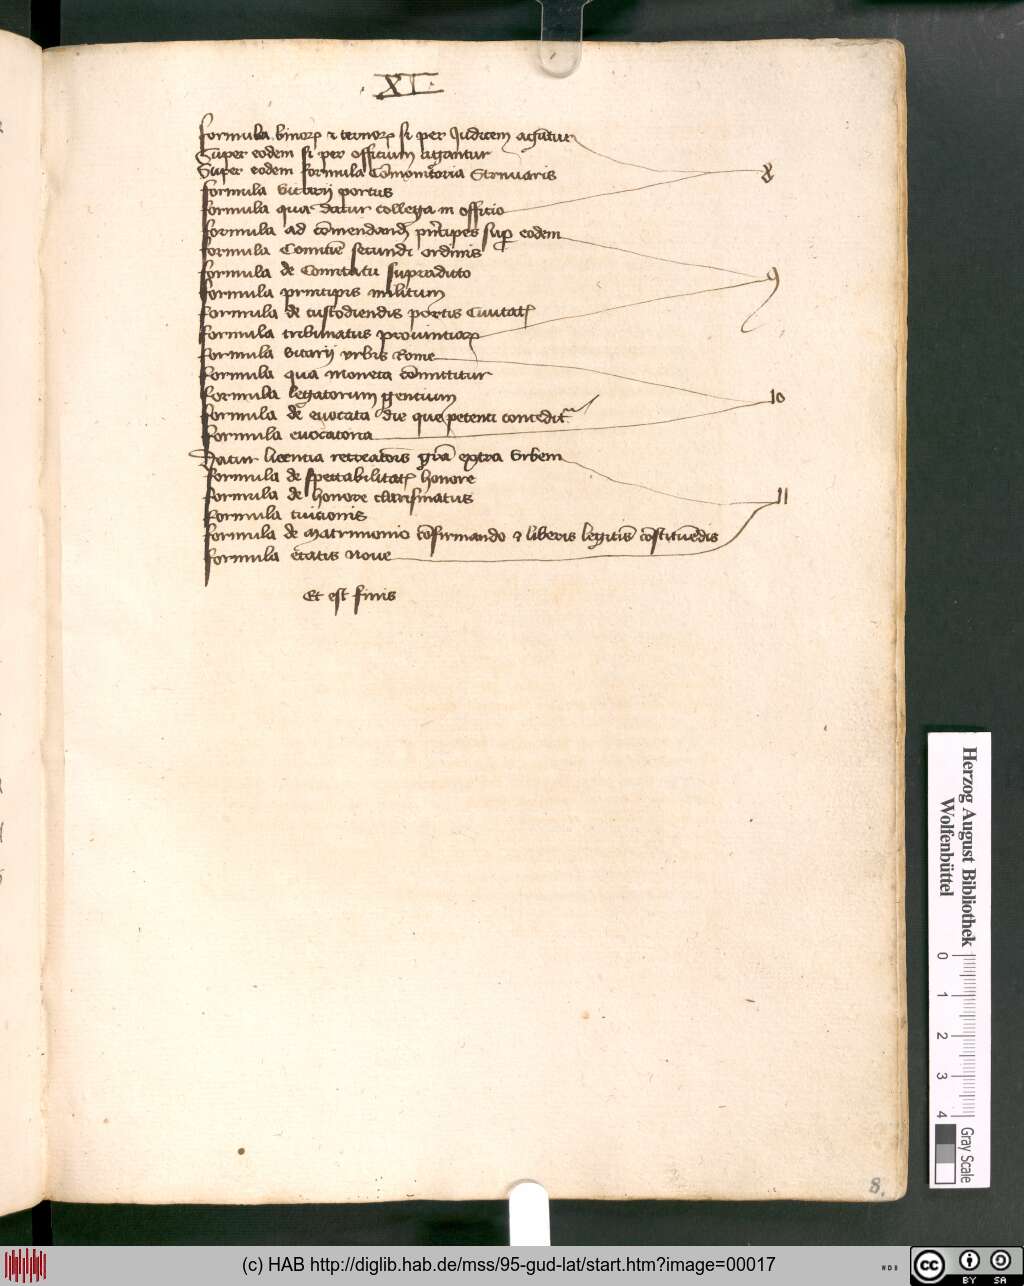 XI
formula binoꝝ ⁊ ternoꝝ si per Judicem agatur
Super eodem si per officium agantur
Super eodem formula Cōmonitoria Strnuaris
formula vicarij portus
formula qua datur collega in officio
8
formula ad cōmendandꝰ principes sup eodem
formula Comitiē secundi ordinis
formula de Comitatu supradicto
formula principis militum
formula de custodiendis portis Ciuitatꝭ
formula tribunatus prouinciaꝝ
9
formula vicarij vrbis Rome
formula qua moneta cōmittitur
formula legatorum gentium
formula de euocata die que petenti conceditᷓ
formula euocatoria
10
Datur licentia recreatōis grā extra vrbem
formula de spectabilitatꝭ honore
formula de honore clarissimatus
formula tuicionis
formula de matrimonio cōfirmando ⁊ liberis legitīs cōstituēdis
formula etatis noue
11
Et est finis
8.
Herzog August Bibliothek
Wolfenbüttel
0 1 2 3 4
Gray Scale
(c) HAB http://diglib.hab.de/mss/95-gud-lat/start.htm?image=00017
WDB
cc BY SA